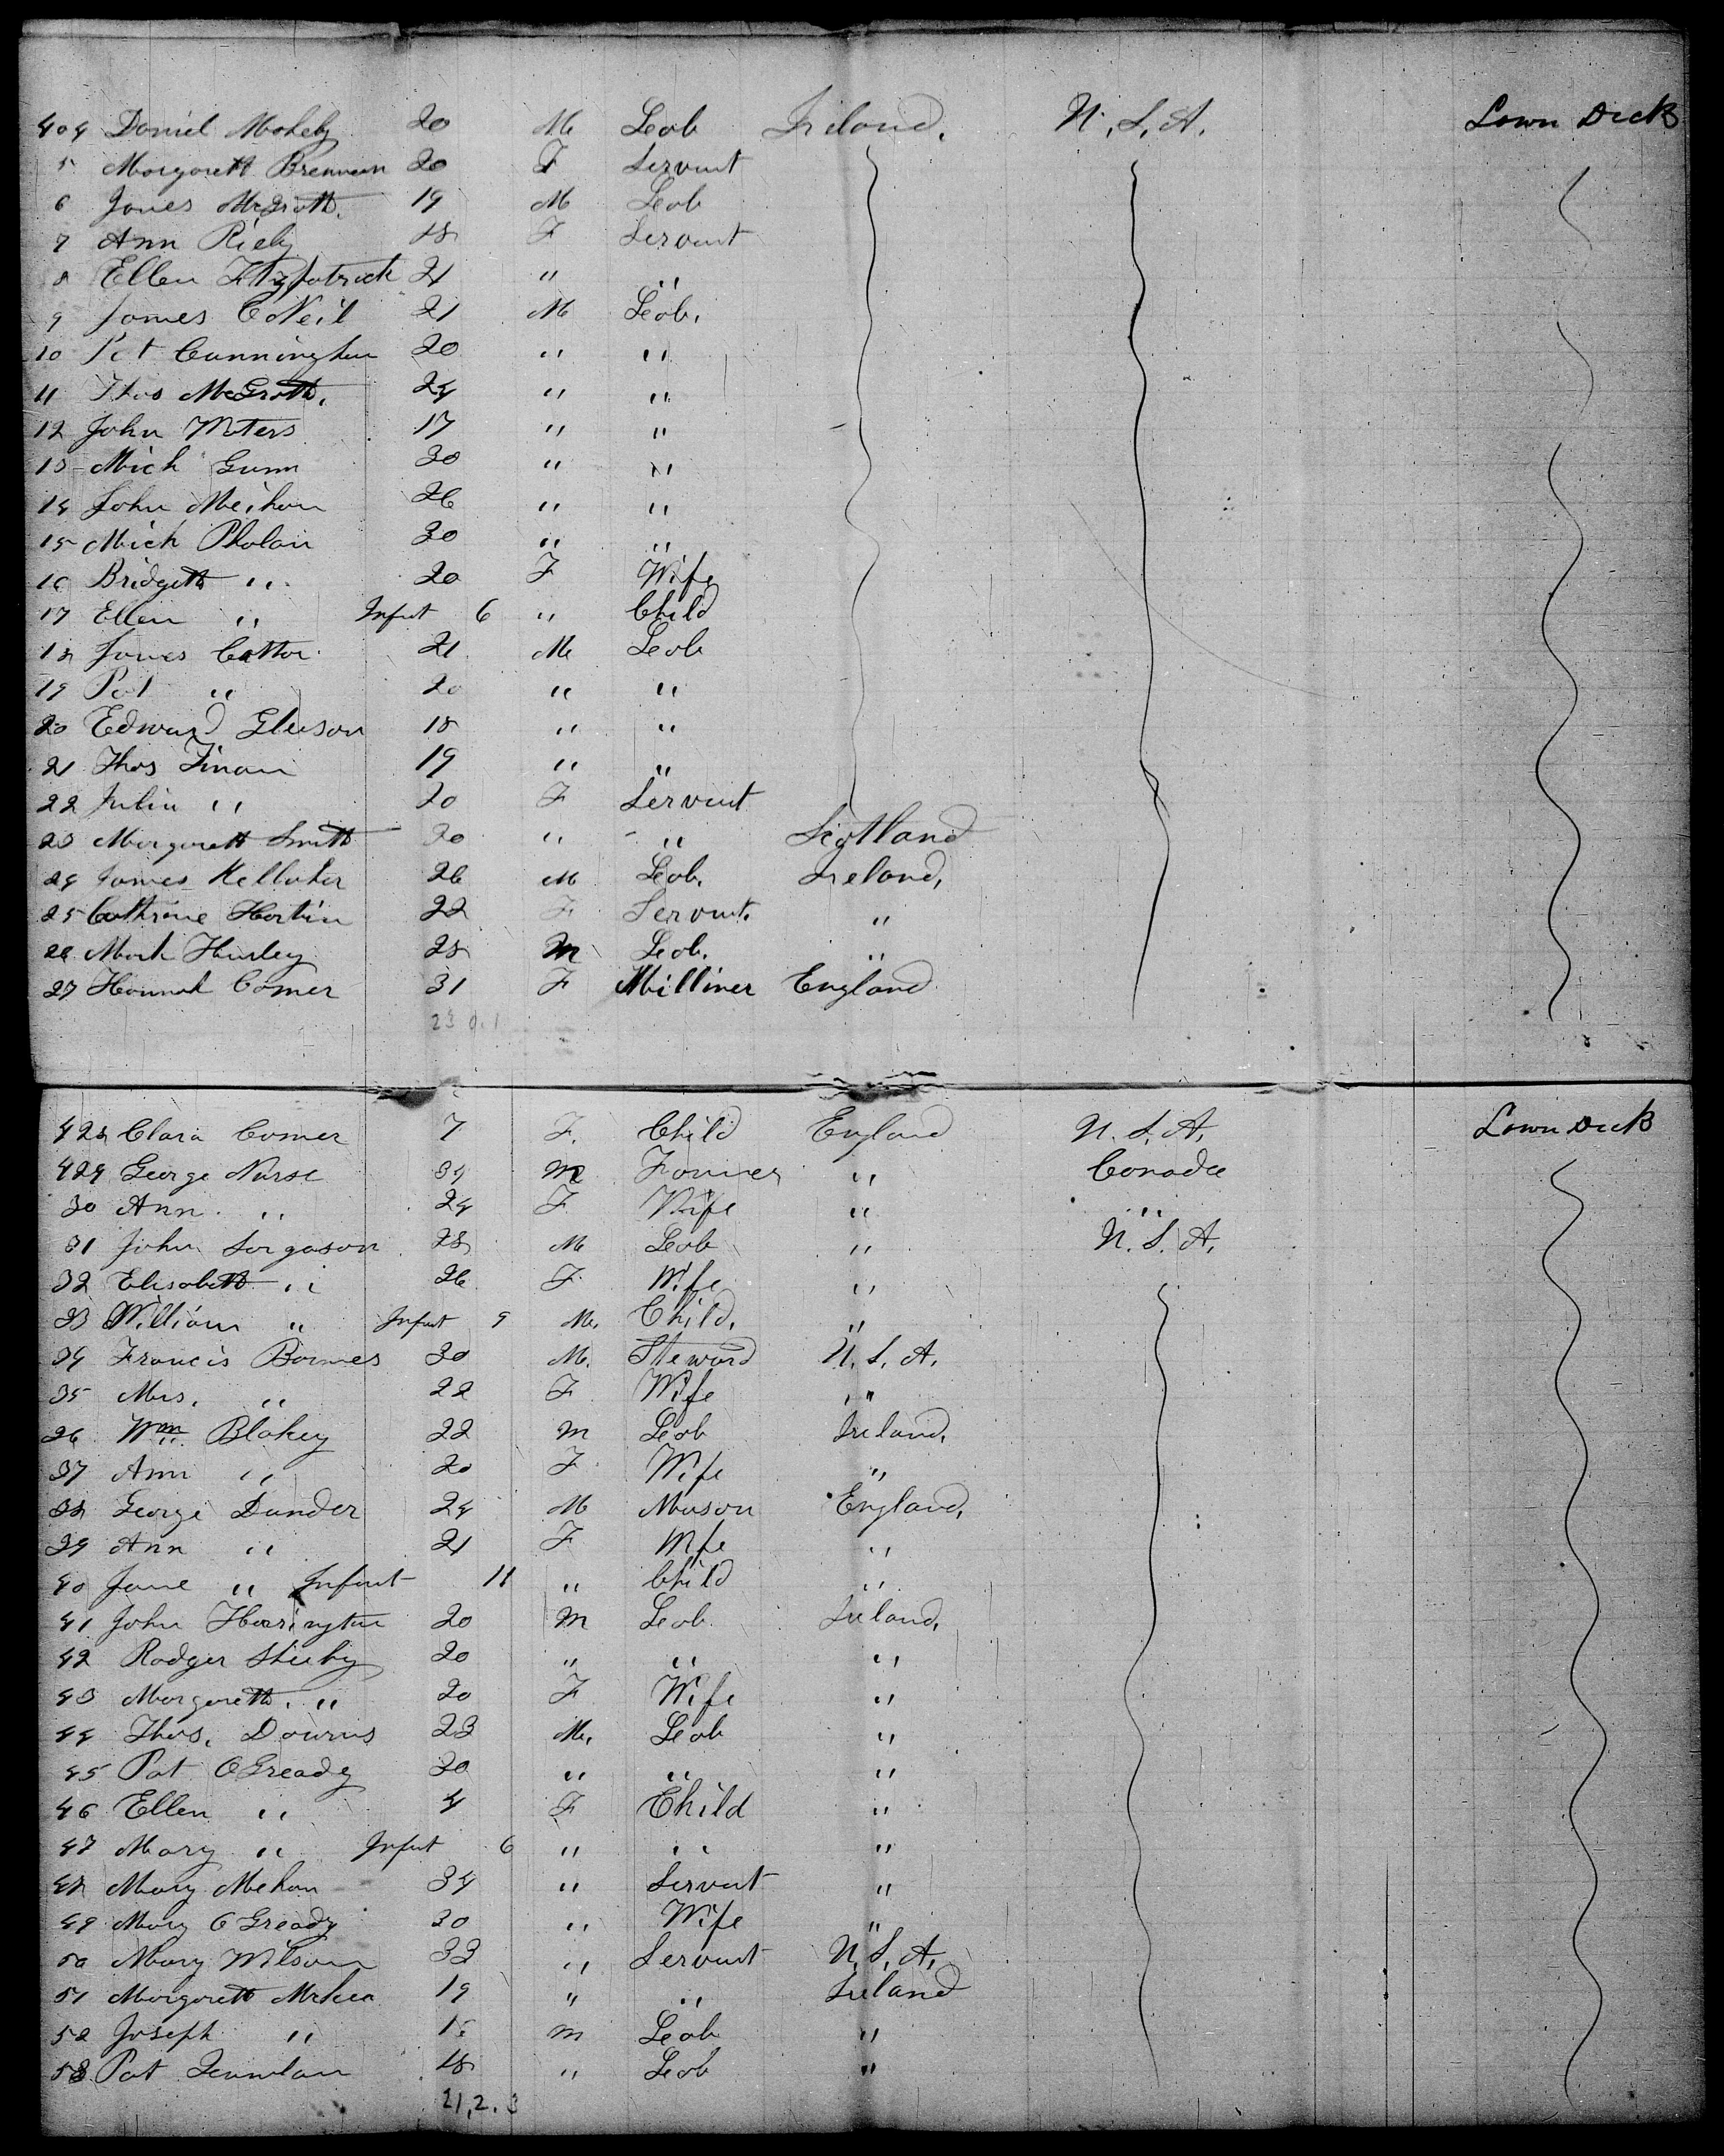 404 Daniel Mokely 20 M Leob Ireland. U.S.A. Lown Deck
5 Morgarett Brennan 20 F Servent
6 James McGrath 19 M Leob
7 Ann Riely 18 F Servent
8 Ellen Fitzpatrick 21 " "
9 James O Neil 21 M Leob.
10 Pat Cunningham 20 " "
11 Thos McGrath. 24 " "
12 John Moters 17 " "
13 Mich Gunn 30 " "
14 John Meihan 26 " "
15 Mich Pholan 30 " "
16 Bridgett " 20 F Wife
17 Ellen " Infant 6 " Child
18 James Cottor 21 M Leob
19 Pat " 20 " "
20 Edward Gleeson 18 " "
21 Thos Finan 19 " "
22 Julia " 20 F Servent
23 Morgarett Smith 20 " " Scotland
24 James Kellaher 26 M Leob. Ireland,
25 Cathrine Hortin 22 F Servent. "
26 Mark Hurley 28 M Leob. "
27 Hannah Comer 31 F Milliner England
428 Clara Comer 7 F. Child England U.S.A. Lown Deck
429 George Nurse 34 M Farmer " Canada
30 Ann " 24 F Wife " "
31 John Sorgason 28 M Leob " U.S.A.
32 Elisabett " 26 F Wife "
33 William " Infant 9 M. Child, "
34 Francis Barnes 30 M. Steward U.S.A.
35 Mrs. " 22 F Wife "
36 Wm Blakey 22 M Leob Ireland,
37 Ann " 20 F Wife "
38 George Dunder 24 M Mason England,
39 Ann " 21 F Wife "
40 Jane " Infant 11 " Child "
41 John Harrington 20 M Leob Ireland,
42 Rodger Sheehy 20 " " "
43 Morgarett. " 20 F Wife "
44 Thos. Downs 23 M. Leob "
45 Pat O Gready 30 " " "
46 Ellen " 4 F Child "
47 Mary " Infant 6 " " "
48 Mary Mehan 34 " Servent "
49 Mary O Gready 30 " Wife "
50 Mary Wilson 33 " Servent U.S.A.
51 Morgarett McKea 19 " " Ireland
52 Joseph " M Leob "
53 Pat 18 " Leob "
21.2.3